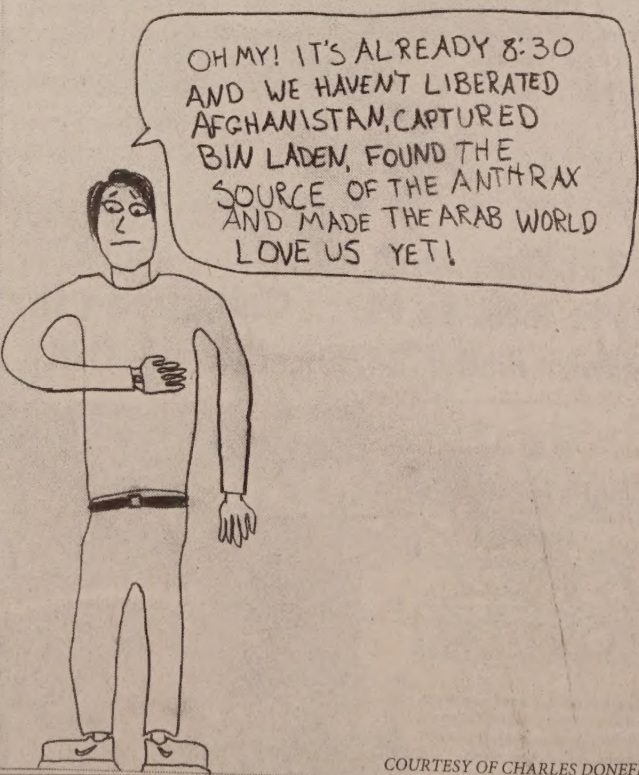 OH MY! IT'S ALREADY 8:30
AND WE HAVEN'T LIBERATED
AFGHANISTAN, CAPTURED
BIN LADEN, FOUND THE
SOURCE OF THE ANTHRAX
AND MADE THE ARAB WORLD
LOVE US YET!
COURTESY OF CHARLES